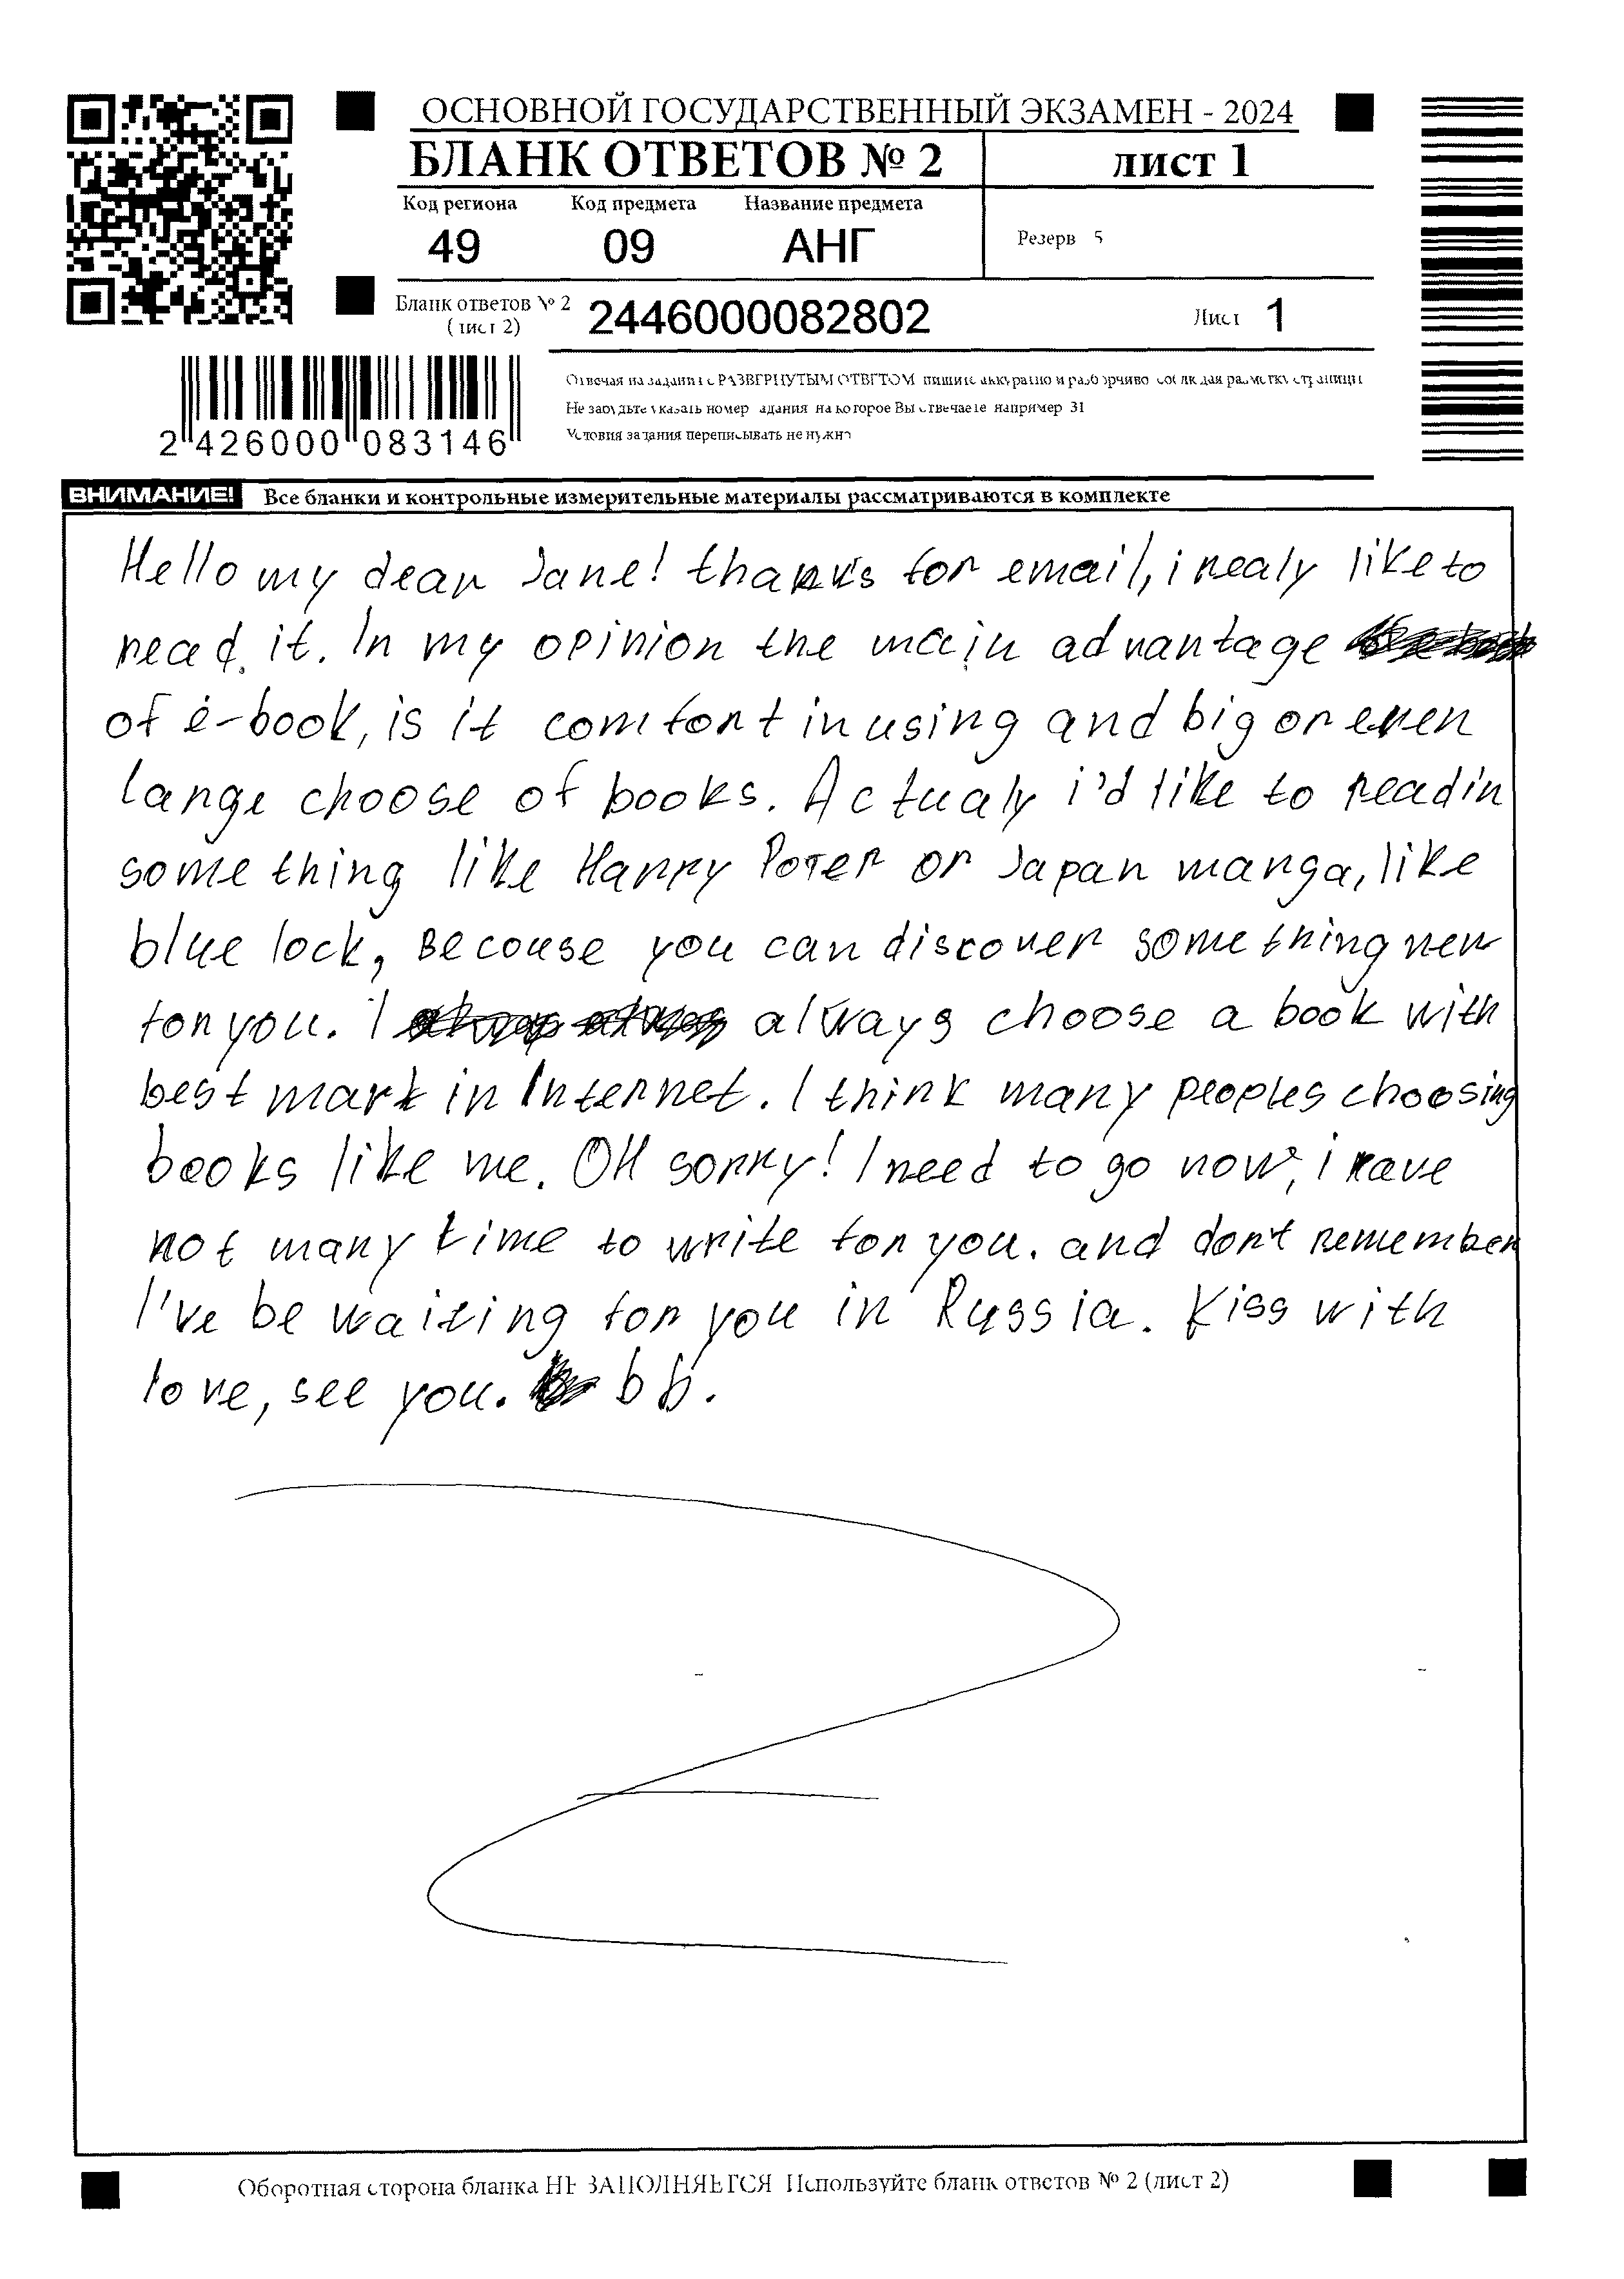 ОСНОВНОЙ ГОСУДАРСТВЕННЫЙ ЭКЗАМЕН - 2024
БЛАНК ОТВЕТОВ № 2
лист 1
Код региона Код предмета Название предмета
49 09 АНГ
Резерв 5
Бланк ответов № 2
(лист 2)
2446000082802
Лист 1
2 426000 083146
Отвечая на задания с РАЗВЕРНУТЫМ ОТВЕТОМ пишите аккуратно и разборчиво соблюдая разметку страницы
Не забудьте указать номер задания на которое Вы отвечаете например 31
Условия задания переписывать не нужно
ВНИМАНИЕ! Все бланки и контрольные измерительные материалы рассматриваются в комплекте
Hello my dear Jane! thanks for email, i realy like to
read it. In my opinion the main advantage
of e-book, is it comfort in using and big or even
large choose of books. Actualy i'd like to readin
something like Harry Poter or Japan manga, like
blue lock, Becouse you can discover something new
for you. I always choose a book with
best mark in Internet. I think many peoples choosing
books like me. OH sorry! I need to go now, i have
not many time to write for you. and don't remember
I've be waiting for you in Russia. Kiss with
love, see you. bb.
Оборотная сторона бланка НЕ ЗАПОЛНЯЕТСЯ Используйте бланк ответов № 2 (лист 2)